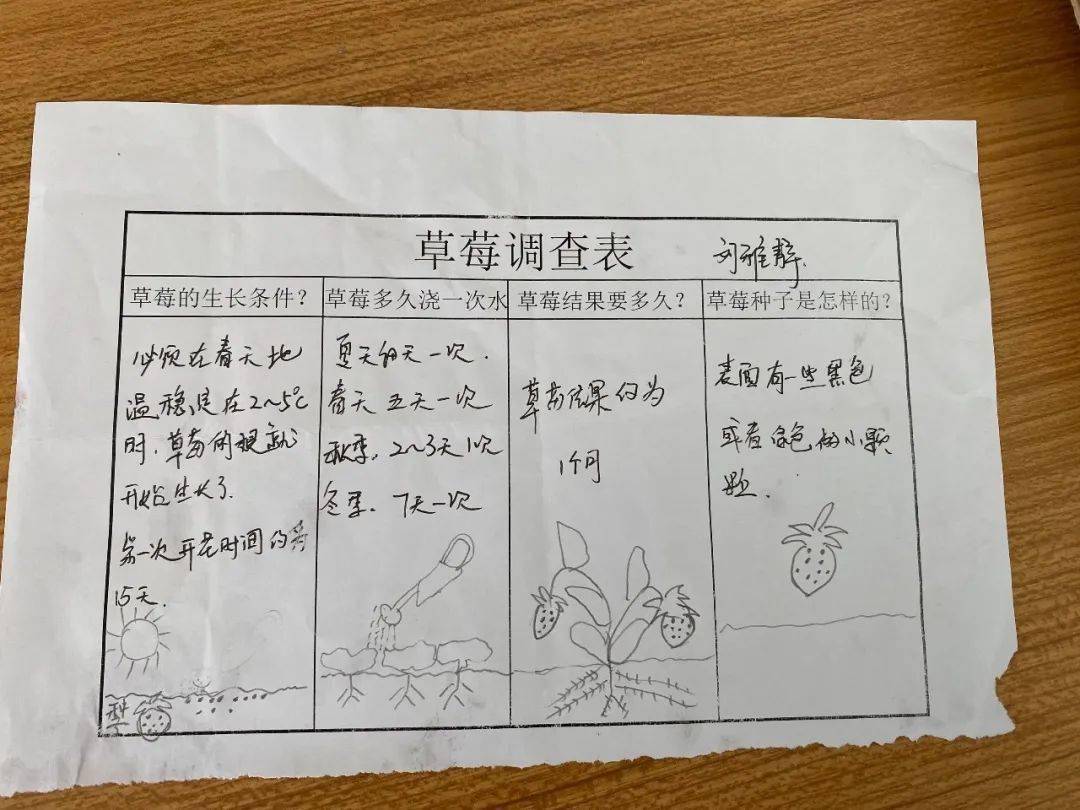 草莓调查表 刘雅静.
草莓的生长条件? 草莓多久浇一次水 草莓结果要多久? 草莓种子是怎样的?
必须在春天地
温稳定在2~5℃
时.草莓的根就
开始生长了.
第一次开花时间约
15天.
种
夏天每天一次.
春天 五天一次
秋季. 2~3天1次
冬季. 7天一次
草莓结果约为
1个月
表面有一些黑色
或者白色的小颗
粒.